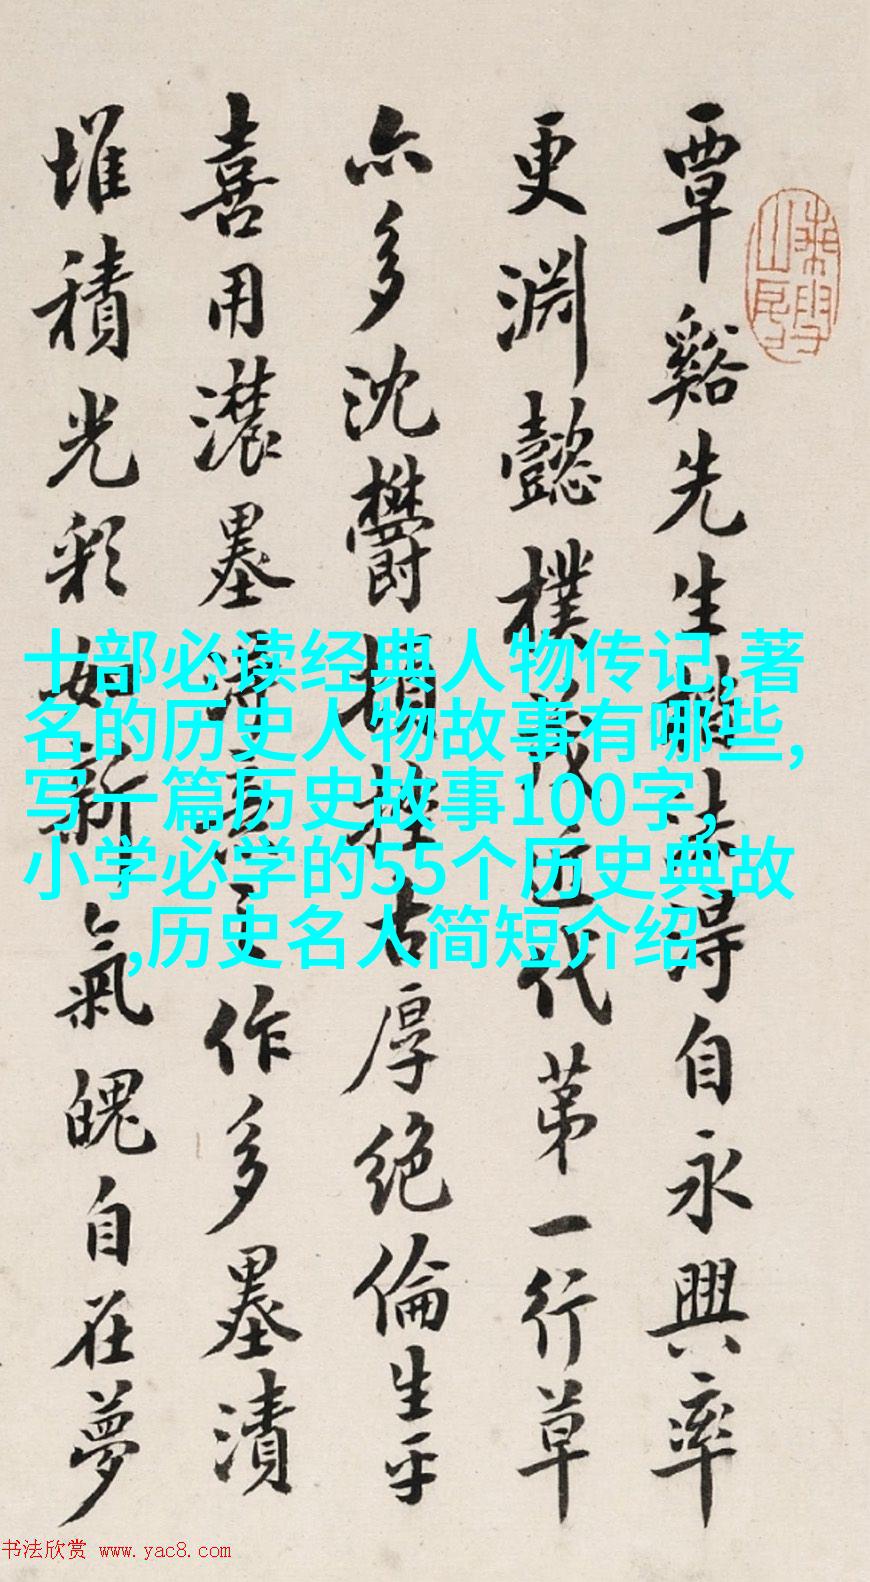 覃谿先生得自永興率
更淵懿樸茂近代第一行草
亦多沈鬱頓挫古厚絕倫生平
喜用濃墨作多墨漬
堆積光彩如新氣魄自在夢
十部必读经典人物传记,著
名的历史人物故事有哪些,
写一篇历史故事100字,
小学必学的55个历史典故
,历史名人简短介绍
书法欣赏 www.yac8.com